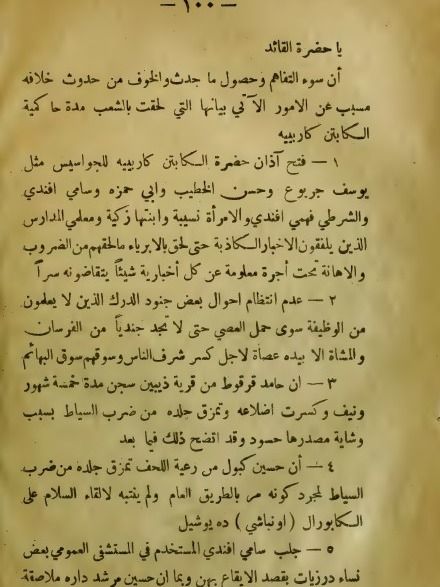 — ١٠٠ —
يا حضرة القائد
أن سوء التفاهم وحصول ما جدث والخوف من حدوث خلافه
مسبب عن الامور الآتي بيانها التي لحقت بالشعب مدة حا كمية
الكابتن كاربييه
١ — فتح آذان حضرة الكابتن كاربييه للجواسيس مثل
يوسف جربوع وحسن الخطيب وابي حمزه وسامي افندي
والشرطي فهمي افندي والامرأة نسيبة وابنتها زكية ومعلمي المدارس
الذين يلفقون الاخبار الكاذبة حتى لحق بالابرياء مالحقهم من الضروب
والاهانة تحت أجرة معلومة عن كل أخبارية شيئاً يتقاضونه سراً
٢ — عدم انتظام احوال بعض جنود الدرك الذين لا يعلمون
من الوظيفة سوى حمل العصي حتى لا تجد جندياً من الفرسان
والمشاة الا بيده عصاة لاجل كسر شرف الناس وسوقهم سوق البهائم
٣ — ان حامد قرقوط من قرية ذيبين سجن مدة خمسة شهور
ونيف وكسرت اضلاعه وتمزق جلده من ضرب السياط بسبب
وشاية مصدرها حسود وقد اتضح ذلك فيما بعد
٤ — أن حسين كبول من رعية اللحف تمزق جلده من ضرب
السياط لمجرد كونه مر بالطريق العام ولم ينتبه لالقاء السلام على
الكابورال ( اونباشي ) ده يوشيل
٥ — جلب سامي افندي المستخدم في المستشفى العمومي بعض
نساء درزيات بقصد الايقاع بهن وبما ان حسين مرشد داره ملاصقة